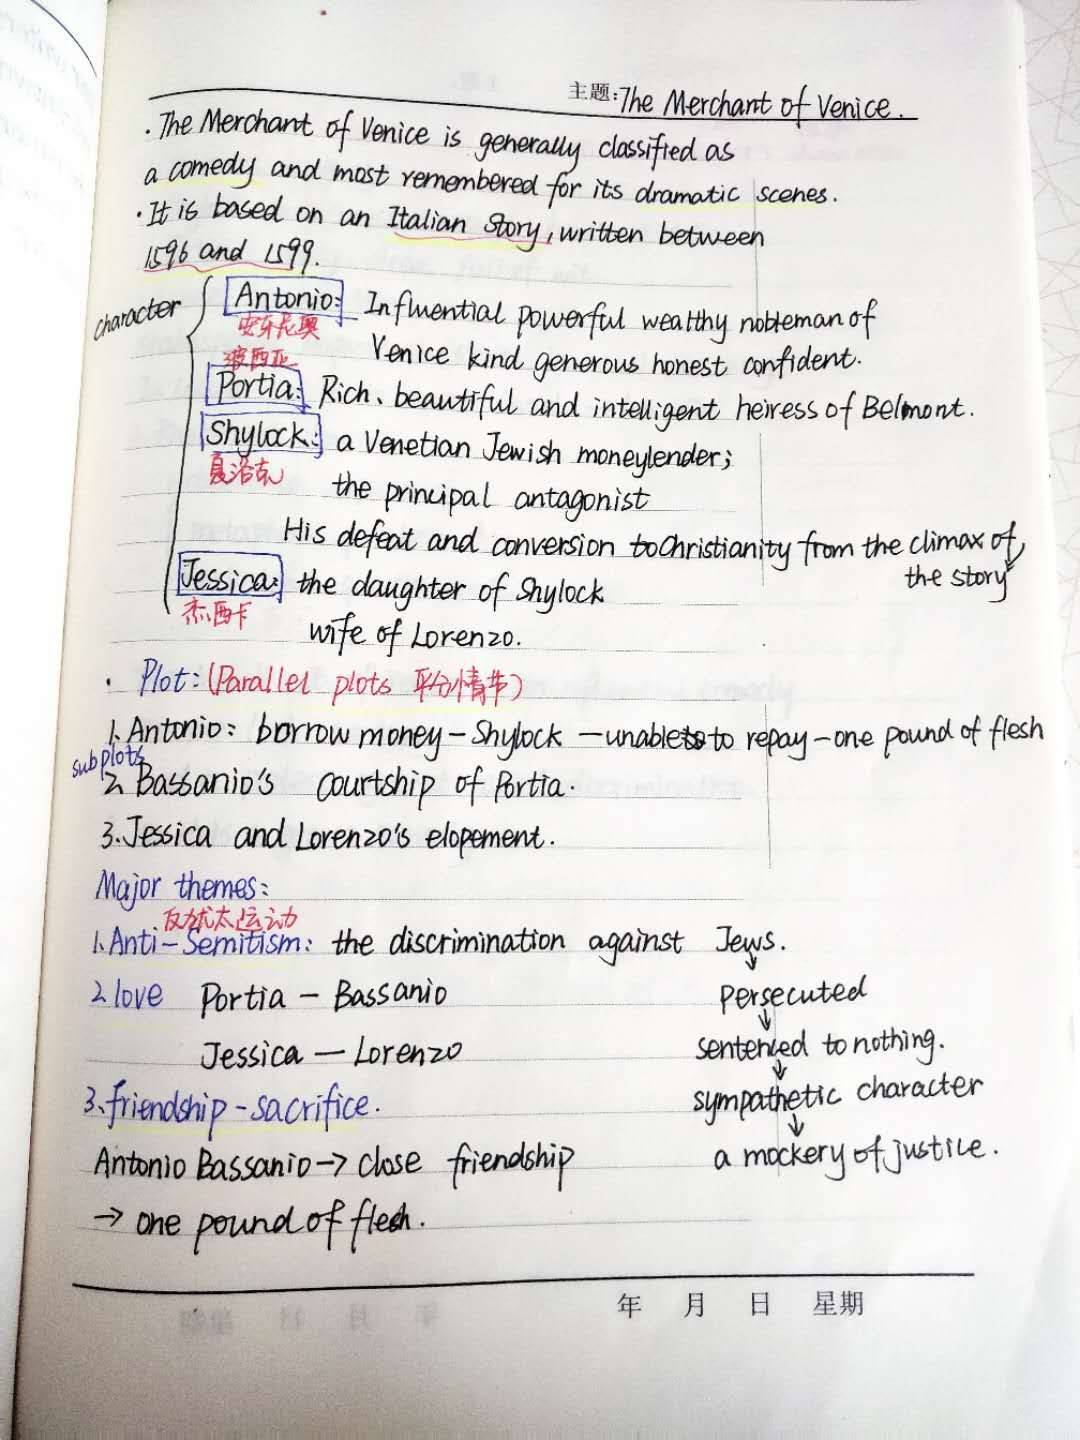 主题:The Merchant of Venice.
· The Merchant of Venice is generally classified as
a comedy and most remembered for its dramatic scenes.
· It is based on an Italian Story, written between
1596 and 1599.
character
Antonio: Influential powerful wealthy nobleman of
安东尼奥
Venice kind generous honest confident.
波西亚
Portia: Rich、beautiful and intelligent heiress of Belmont.
Shylock: a Venetian Jewish moneylender;
夏洛克
the principal antagonist
His defeat and conversion to Christianity from the climax of
the story
Jessica: the daughter of Shylock
杰西卡
wife of Lorenzo.
· Plot: (Parallel plots 平行情节)
1. Antonio: borrow money – Shylock – unable to repay – one pound of flesh
subplots
2. Bassanio's courtship of Portia.
3. Jessica and Lorenzo's elopement.
Major themes:
反犹太运动
1. Anti-Semitism: the discrimination against Jews.
↓
2 love Portia – Bassanio persecuted
↓
Jessica – Lorenzo sentenced to nothing.
↓
3、friendship - sacrifice. sympathetic character
↓
Antonio Bassanio → close friendship a mockery of justice.
→ one pound of flesh.
年 月 日 星期